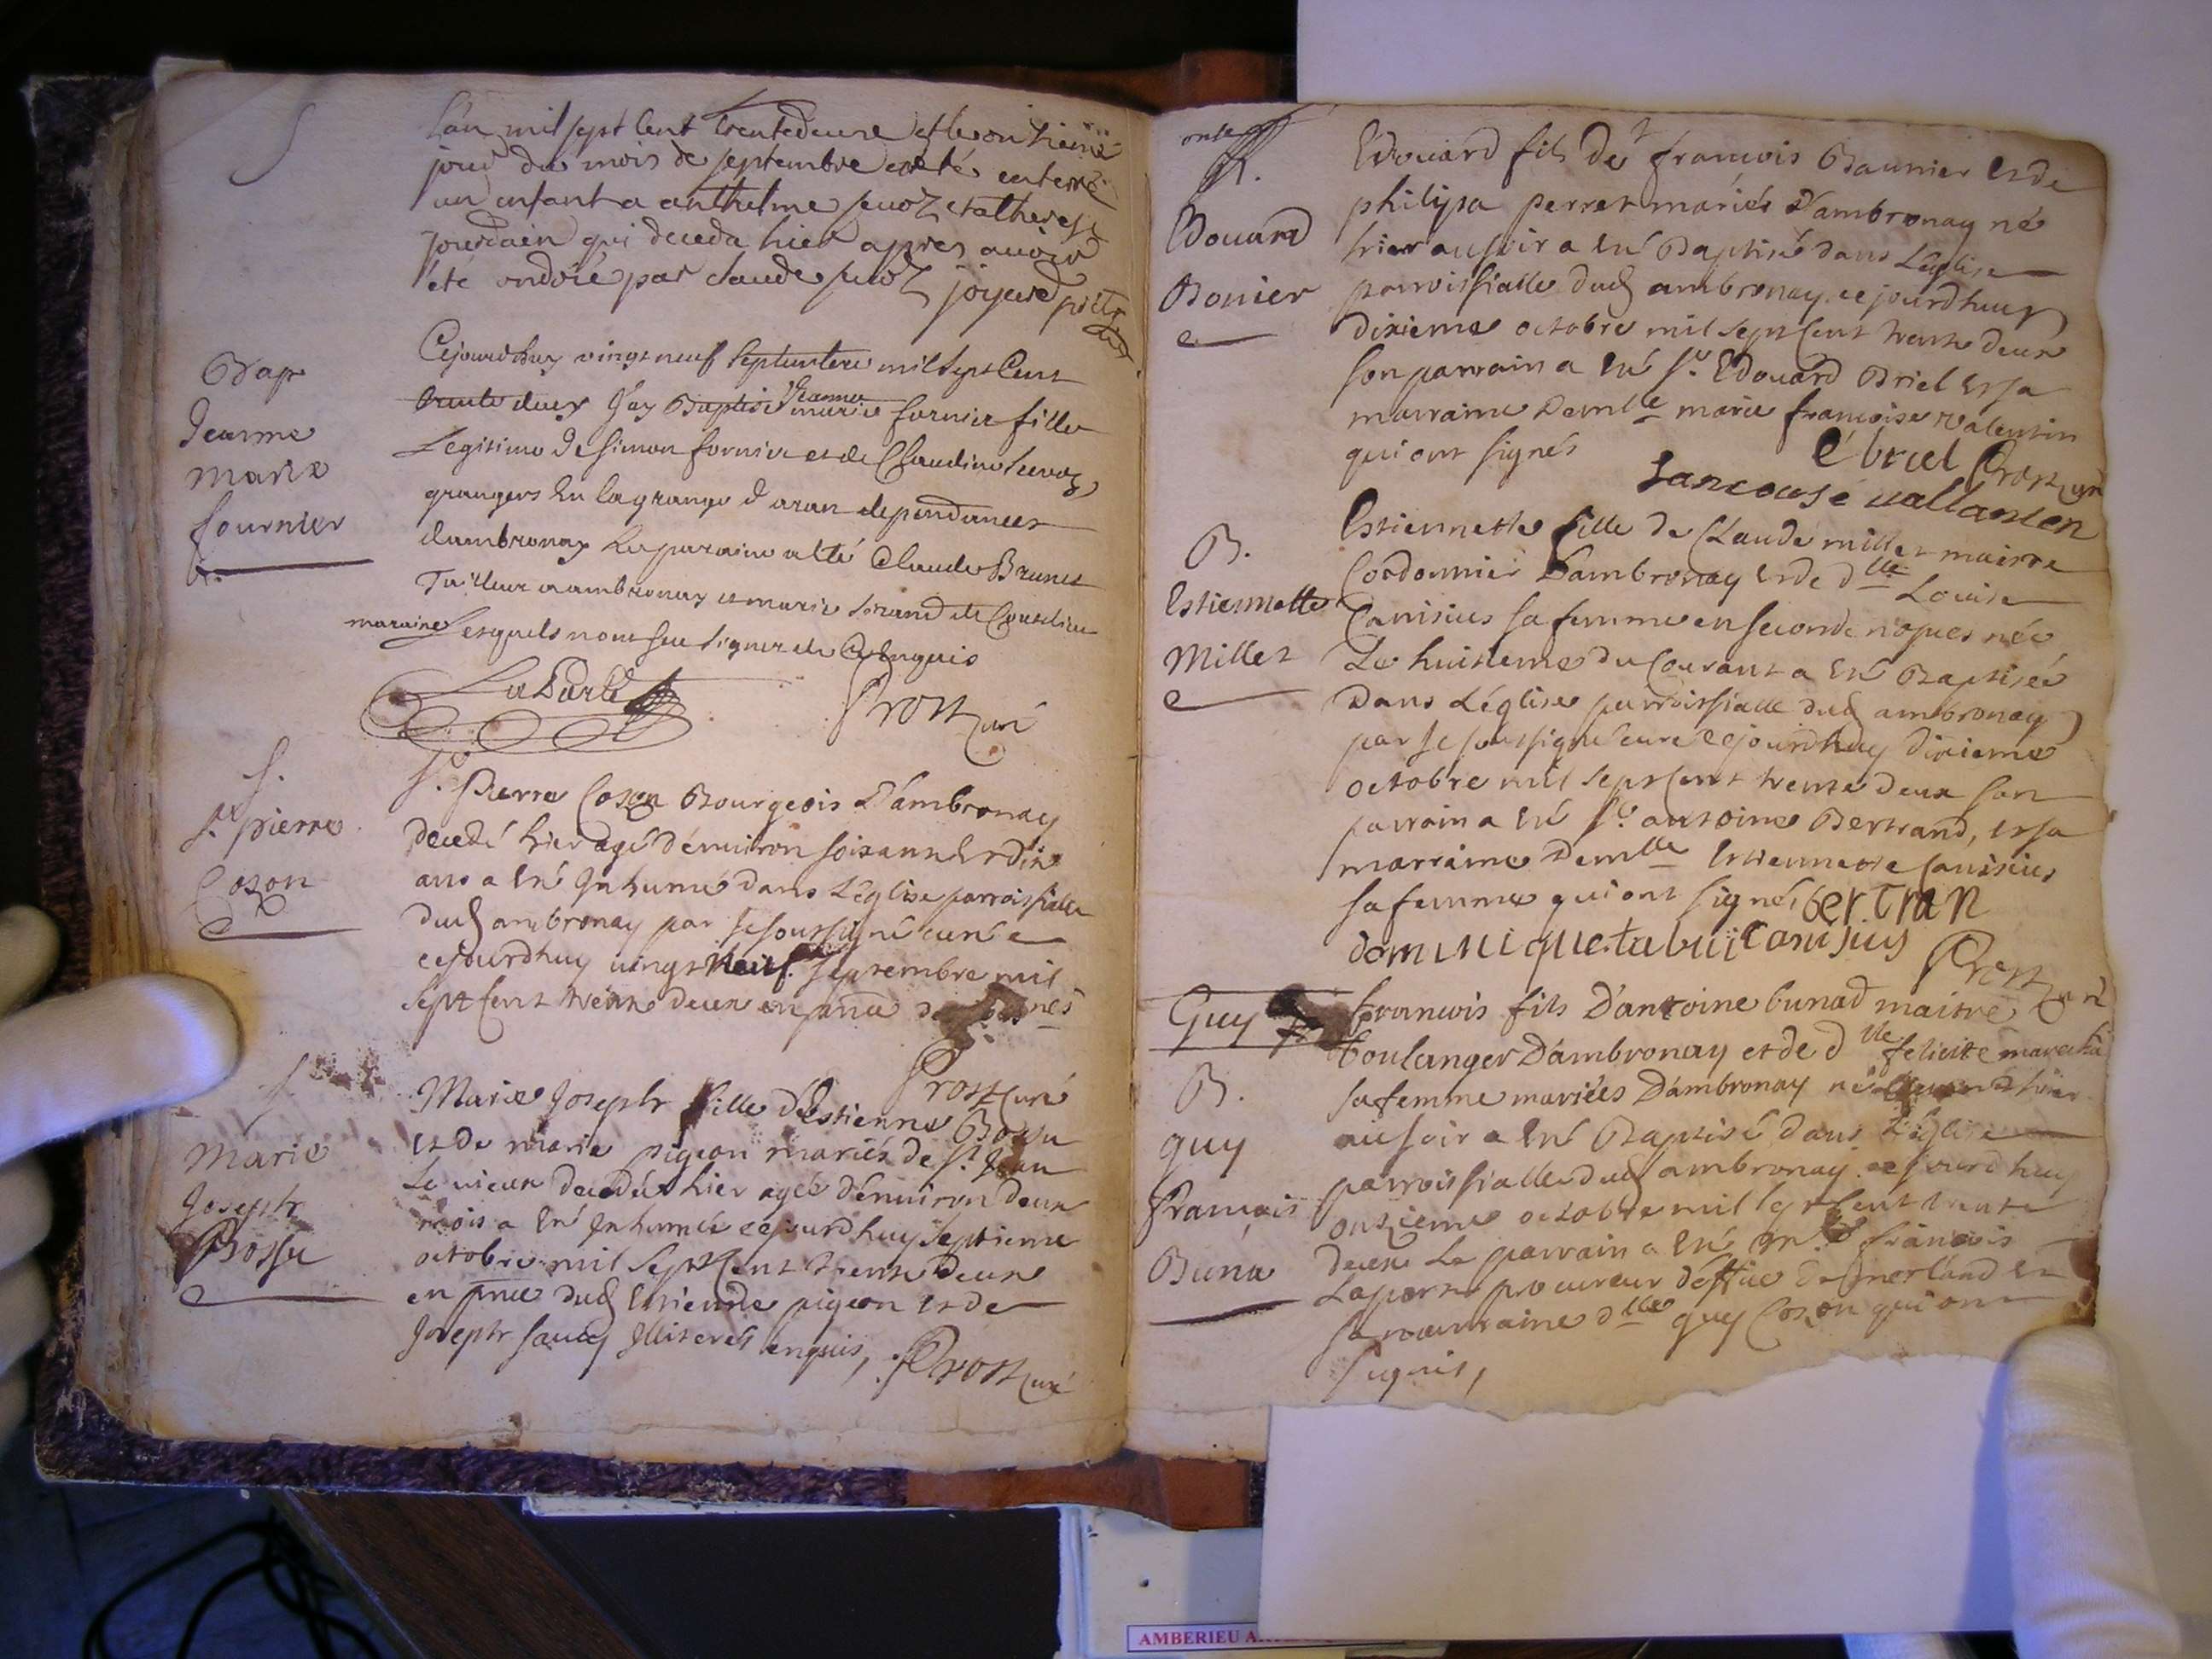 S
L'an mil sept cent trente deux et le onzieme
jour du mois de septembre a été enterré
un enfant a anthelme et a therese
jourdain qui deceda hier apres avoir
été ondoié par claude joyard
Bap
Jeanne
marie
fournier
Cejourdhuy vingt neuf septembre mil sept Cent
trente deux J'ay Baptisé Jeanne marie fornier fille
Legitime de simon fornier et de Claudine
grangers en la grange d aran dependances
dambronay Le parain a eté Claude Brunet
Tailleur a ambronay et marie
maraine Lesquels n'ont seu signer de Ce Enquis
Prost curé
S.
Sr. pierre
Cozon
Sr. Pierre Cozon Bourgeois D'ambronay
decedé hier agé d'environ soixante et dix
ans a eté Inhumé dans L'Eglise parroissialle
dud ambronay par Je soussigné curé
cejourdhuy vingt neuf septembre mil
sept cent trente deux en
Prost curé
S
Marie
Joseph
Bossu
Marie Joseph fille d'Estienne Bossu
et de marie pigeon mariés de St. Jean
Le vieux decedée hier agée d'environ deux
mois a eté Inhumée cejourdhuy septieme
octobre mil sept cent trente deux
en pnce dud Estienne pigeon et de
Joseph Jlliterés enquis, Prost curé
B.
Edouard
Bonier
Edouard fils de francois Baunier et de
philipa perret mariés D'ambronay né
hier au soir a eté Baptisé dans L'église
parroissialle dud ambronay cejourdhuy
dixieme octobre mil sept cent trente deux
son parrain a eté Sr. Edouard Briel et sa
marraine Demlle marie francoise valentin
qui ont signés
Ebriel Prost curé
B.
Estiennette
Millet
Estiennette fille de Claude millet maitre
Cordonnier D'ambronay et de dlle Louise
Canisius sa femme en seconde nopces née
Le huitieme du Courant a eté Baptisée
Dans L'église parroissialle dud ambronay
par Je soussigné curé cejourdhuy dixieme
octobre mil sept cent trente deux son
parrain a eté Sr. antoine Bertrand, et sa
marraine Demlle Estiennette Canisius
sa femme qui ont signés ber.tran
Prost curé
Guy
B.
guy
Francois
Buna
francois fils D'antoine bunad maitre
Boulanger D'ambronay et de dlle felicite
sa femme mariées D'ambronay né hier
au soir a eté Baptisé dans L'église
parroissialle dud ambronay cejourdhuy
onzieme octobre mil sept cent trente
deux Le parrain a eté francois
Laporte procureur d'office de et
sa marraine dlle guy Cozon qui ont
signés,
AMBERIEU